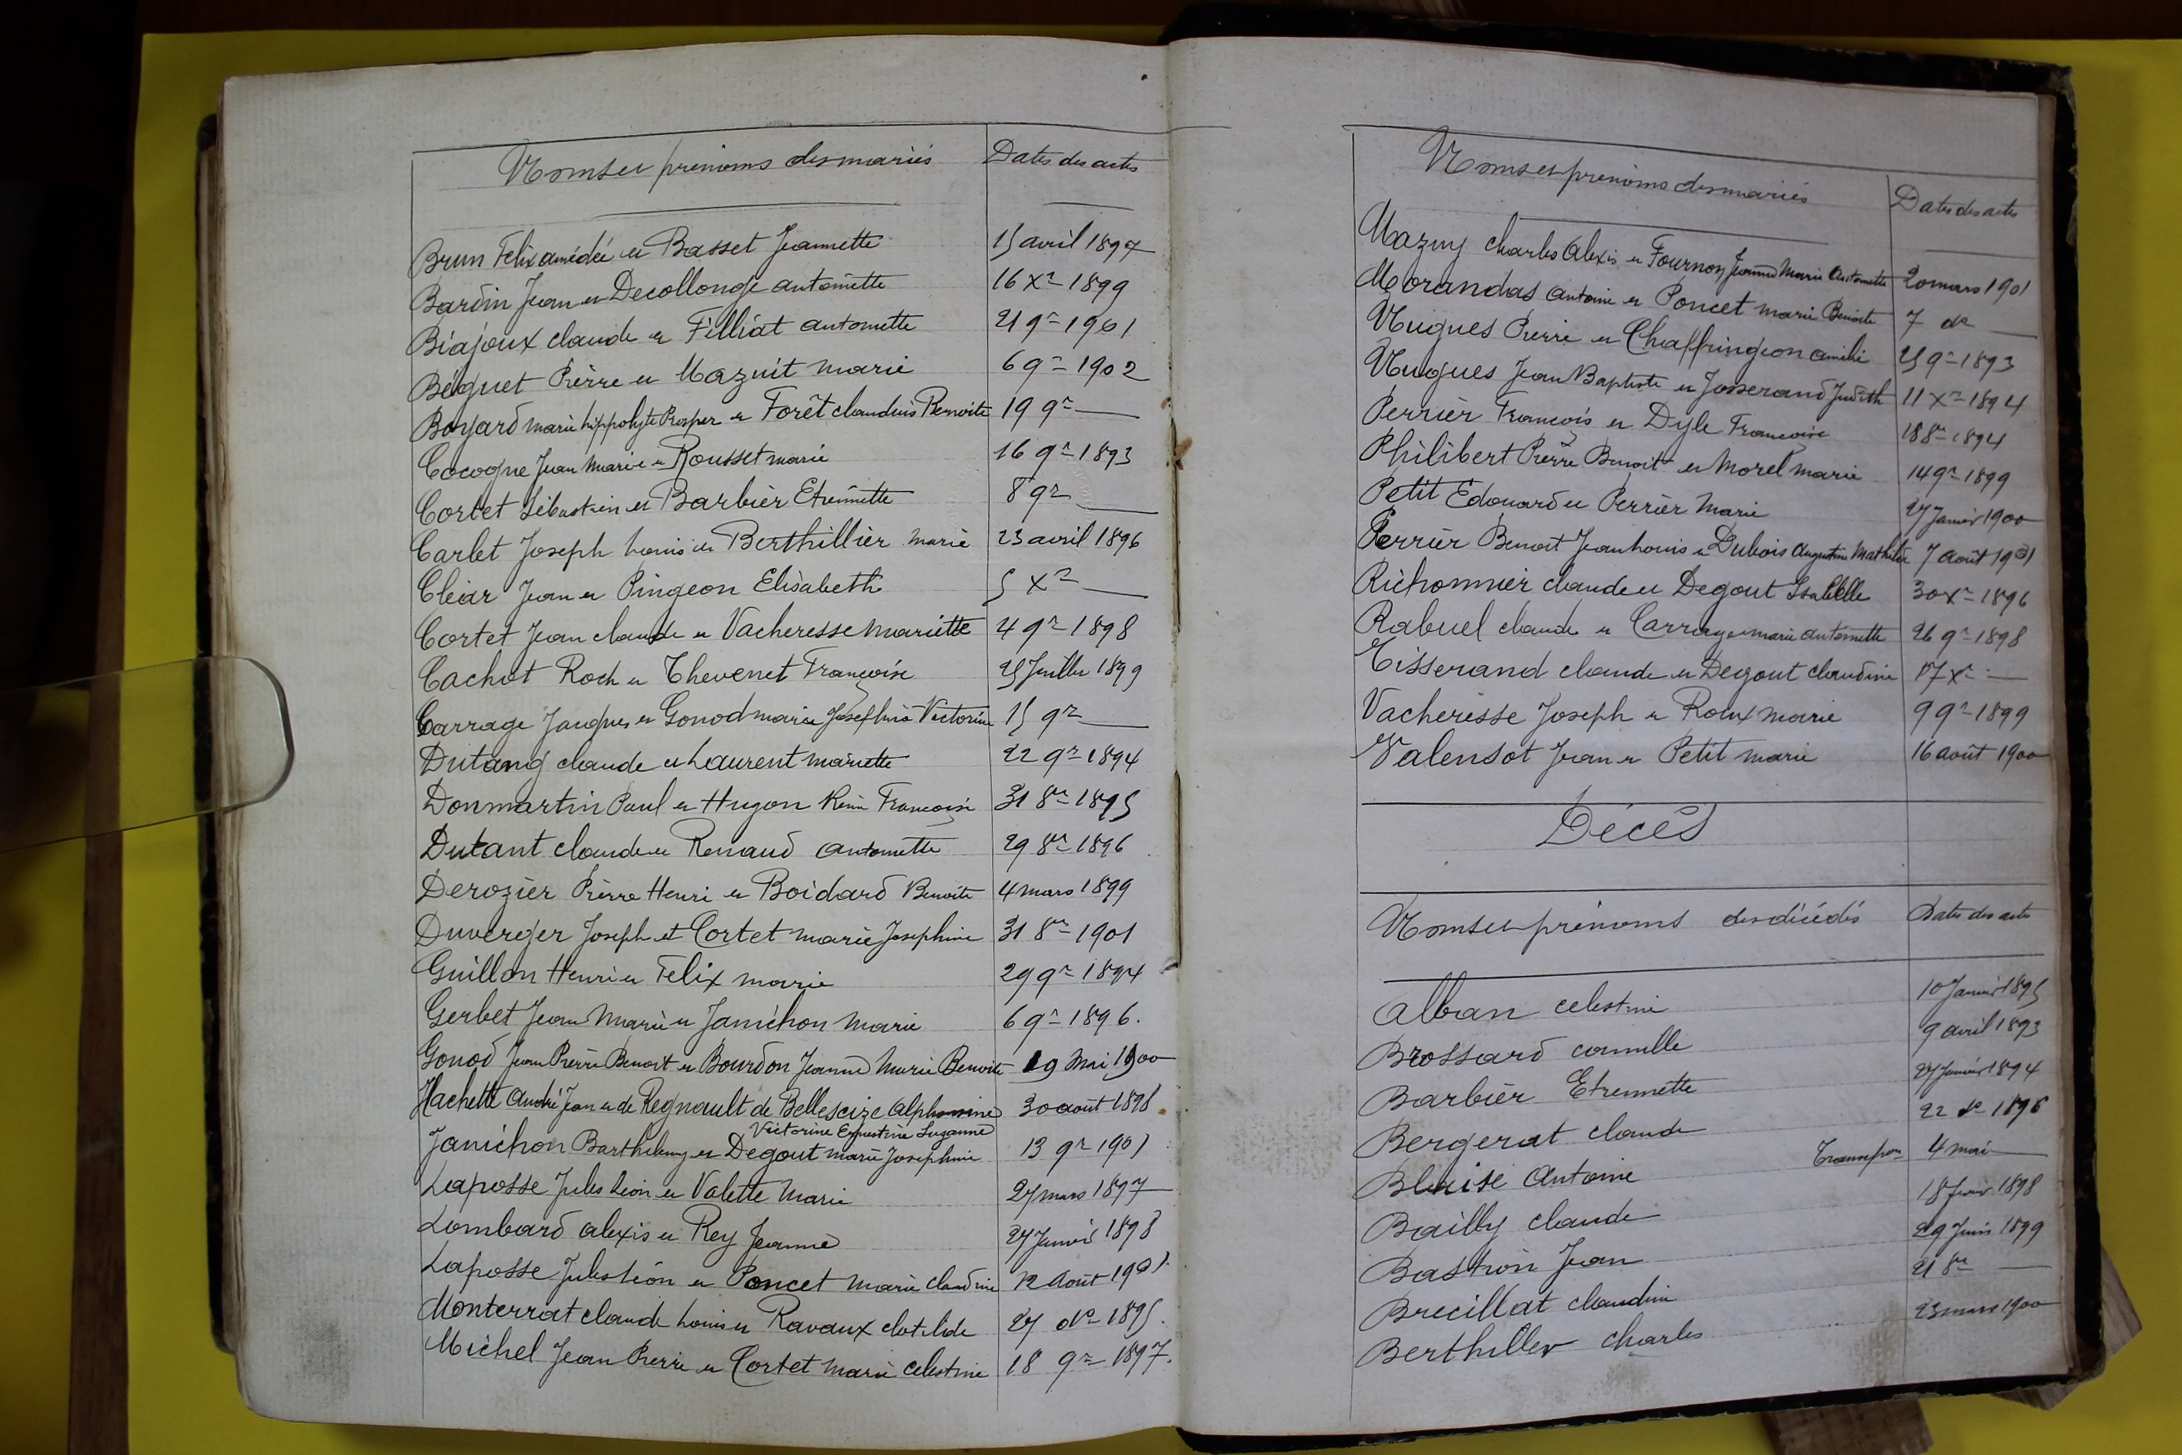 Noms et prénoms des mariés Dates des actes
Brun Felix amédée et Basset Jeannette 15 avril 1897
Bardin Jean et Decollonge antoinette 16 Xre 1899
Biajoux claude et Filliat antoinette 21 9re 1901
Béguet Pierre et Mazuit marie 6 9re 1902
Boyard marie hippolyte Prosper et Forêt claudius Benoite 19 9re —
Cocogne Jean Marie et Rousset marie 16 9re 1893
Cortet Sébastien et Barbier Etiennette 8 9re —
Carlet Joseph Louis et Berthillier marie 23 avril 1896
Cléar Jean et Pingeon Elisabeth 5 Xre —
Cortet Jean claude et Vacheresse Mariette 4 9re 1898
Cachot Roch et Thevenet Françoise 25 Juillet 1899
Carrage Jacques et Gonod marie Joséphine Victorine 15 9re —
Dutang claude et Laurent mariette 22 9re 1894
Donmartin Paul et Hugon Reine Françoise 31 8re 1895
Dutant claude et Renaud antoinette 29 8re 1896
Derozier Pierre Henri et Boidard Benoite 4 mars 1899
Duverger Joseph et Cortet marie Josephine 31 8re 1901
Guillon Henri et Felix marie 29 9re 1894
Gerbet Jean Marie et Janichon Marie 6 9re 1896.
Gonod Jean Pierre Benoit et Bourdon Jeanne Marie Benoite 19 Mai 1900
Hachette André Jean et de Regnault de Bellescize Alphonsine 30 août 1898.
Victorine Ernestine Suzanne
Janichon Barthelemy et Degout marie Josephine 13 9re 1901
Laposse Jules Léon et Valette Marie 27 mars 1897
Lombard alexis et Rey Jeanne 27 Janvier 1898
Laposse Jules Léon et Poncet Marie claudine 12 Août 1901
Monterrat claude Louis et Ravaux clotilde 27 do 1895.
Michel Jean Pierre et Cortet Marie celestine 18 9re 1897.
Noms et prénoms des mariés Dates des actes
Mazuy charles Alexis et Fournon Jeanne Marie Antoinette 20 mars 1901
Morandas antoine et Poncet marie Benoite 7 do —
Nugues Pierre et Chaffringeon amélie 25 9re 1893
Nugues Jean Baptiste et Josserand Judith 11 Xre 1894
Perrier François et Dyle Françoise 18 8re 1894
Philibert Pierre Benoit et Morel marie 14 9re 1899
Petit Edouard et Perrier Marie 27 Janvier 1900
Perrier Benoit Jean Louis et Dubois Augustine Mathilde 7 août 1901
Richonnier claude et Degout Isabelle 30 Xre 1896
Rabuel claude et Carrage marie antoinette 26 9re 1898
Tisserand claude et Degout claudine 17 Xre —
Vacheresse Joseph et Roux marie 9 9re 1899
Valensot Jean et Petit marie 16 août 1900
Décès
Noms et prénoms des décédés Dates des actes
Alban celestine 10 Janvier 1895
Brossard camille 9 avril 1893
Barbier Etiennette 27 Janvier 1894
Bergerat claude 22 do 1896
Blaise Antoine Transcron 4 mai —
Bailly claude 18 février 1898
Bastion Jean 29 Juin 1899
Brecillat claudine 21 8re —
Berthiller charles 23 mars 1900